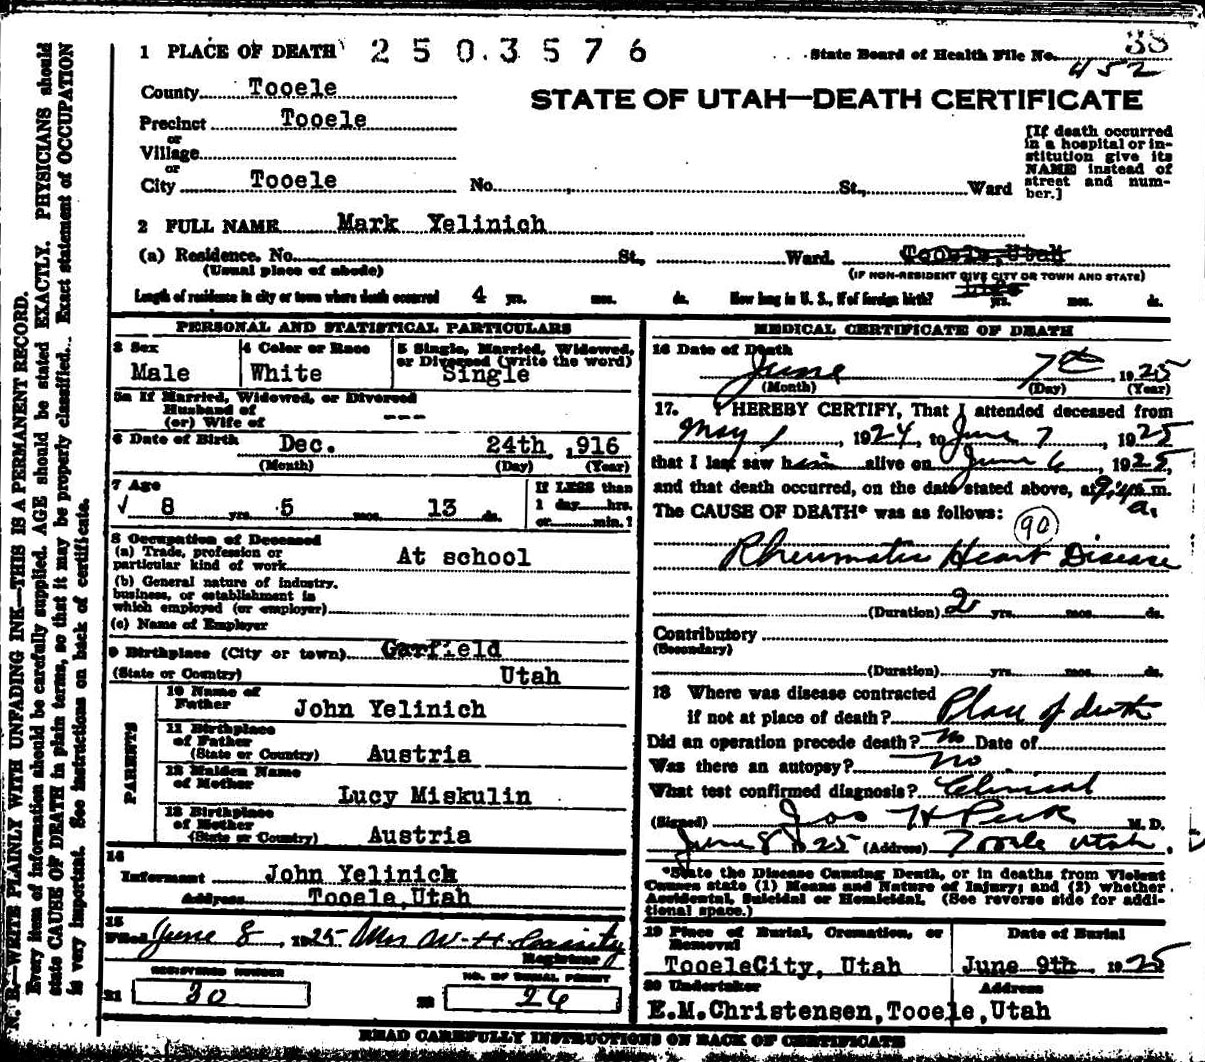 1 PLACE OF DEATH 2 5 0.3 5 7 6 State Board of Health File No. 38
452
County Tooele
STATE OF UTAH—DEATH CERTIFICATE
Precinct Tooele
or
Village
or
City Tooele No. St., Ward
[If death occurred
in a hospital or in-
stitution give its
NAME instead of
street and num-
ber.]
2 FULL NAME Mark Yelinich
(a) Residence. No. St., Ward. Tooele, Utah
(Usual place of abode) (IF NON-RESIDENT GIVE CITY OR TOWN AND STATE)
Length of residence in city or town where death occurred 4 yrs. mos. ds. How long in U. S., if of foreign birth? yrs. mos. ds.
PERSONAL AND STATISTICAL PARTICULARS
3 Sex
Male
4 Color or Race
White
5 Single, Married, Widowed,
or Divorced (write the word)
Single
5a If Married, Widowed, or Divorced
Husband of
(or) Wife of ---
6 Date of Birth Dec. 24th, 916
(Month) (Day) (Year)
7 Age
√ 8 yrs. 5 mos. 13 ds.
If LESS than
1 day hrs.
or min.?
8 Occupation of Deceased
(a) Trade, profession or
particular kind of work At school
(b) General nature of industry,
business, or establishment in
which employed (or employer)
(c) Name of Employer
9 Birthplace (City or town) Garfield
(State or Country) Utah
PARENTS
10 Name of
Father John Yelinich
11 Birthplace
of Father
(State or Country) Austria
12 Maiden Name
of Mother Lucy Miskulin
13 Birthplace
of Mother
(State or Country) Austria
14
Informant John Yelinick
Address Tooele, Utah
15
Filed June 8, 1925 Mrs W. H. Cassity
Registrar
REGISTERED NUMBER
21 30
NO. OF BURIAL PERMIT
22 26
MEDICAL CERTIFICATE OF DEATH
16 Date of Death
June 7th, 1925
(Month) (Day) (Year)
17. I HEREBY CERTIFY, That I attended deceased from
May 1, 1924, to June 7, 1925
that I last saw him alive on June 6, 1925,
and that death occurred, on the date stated above, at m.
a.
The CAUSE OF DEATH* was as follows: 90
Rheumatic Heart Disease
(Duration) 2 yrs. mos. ds.
Contributory
(Secondary)
(Duration) yrs. mos. ds.
18 Where was disease contracted
if not at place of death? Place of death
Did an operation precede death? No Date of
Was there an autopsy? No
What test confirmed diagnosis? Clinical
(Signed) Jos H Peck M. D.
June 8 1925 (Address) Tooele Utah.
*State the Disease Causing Death, or in deaths from Violent
Causes state (1) Means and Nature of Injury; and (2) whether
Accidental, Suicidal or Homicidal. (See reverse side for addi-
tional space.)
19 Place of Burial, Cremation, or
Removal
TooeleCity, Utah
Date of Burial
June 9th 1925
20 Undertaker Address
E.M.Christensen, Tooele, Utah
READ CAREFULLY INSTRUCTIONS ON BACK OF CERTIFICATE
N. B.—WRITE PLAINLY WITH UNFADING INK—THIS IS A PERMANENT RECORD.
Every item of information should be carefully supplied. AGE should be stated EXACTLY. PHYSICIANS should
state CAUSE OF DEATH in plain terms, so that it may be properly classified. Exact statement of OCCUPATION
is very important. See instructions on back of certificate.